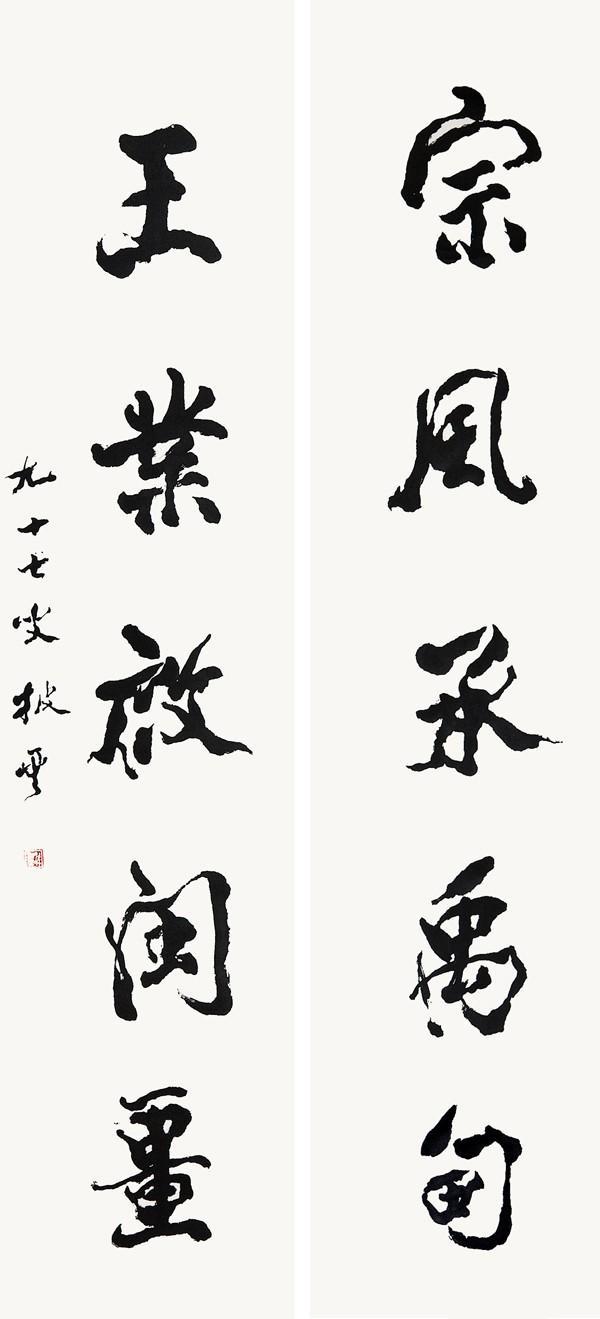 宗風承禹甸
王業啟閩畺
九十七叟披雲